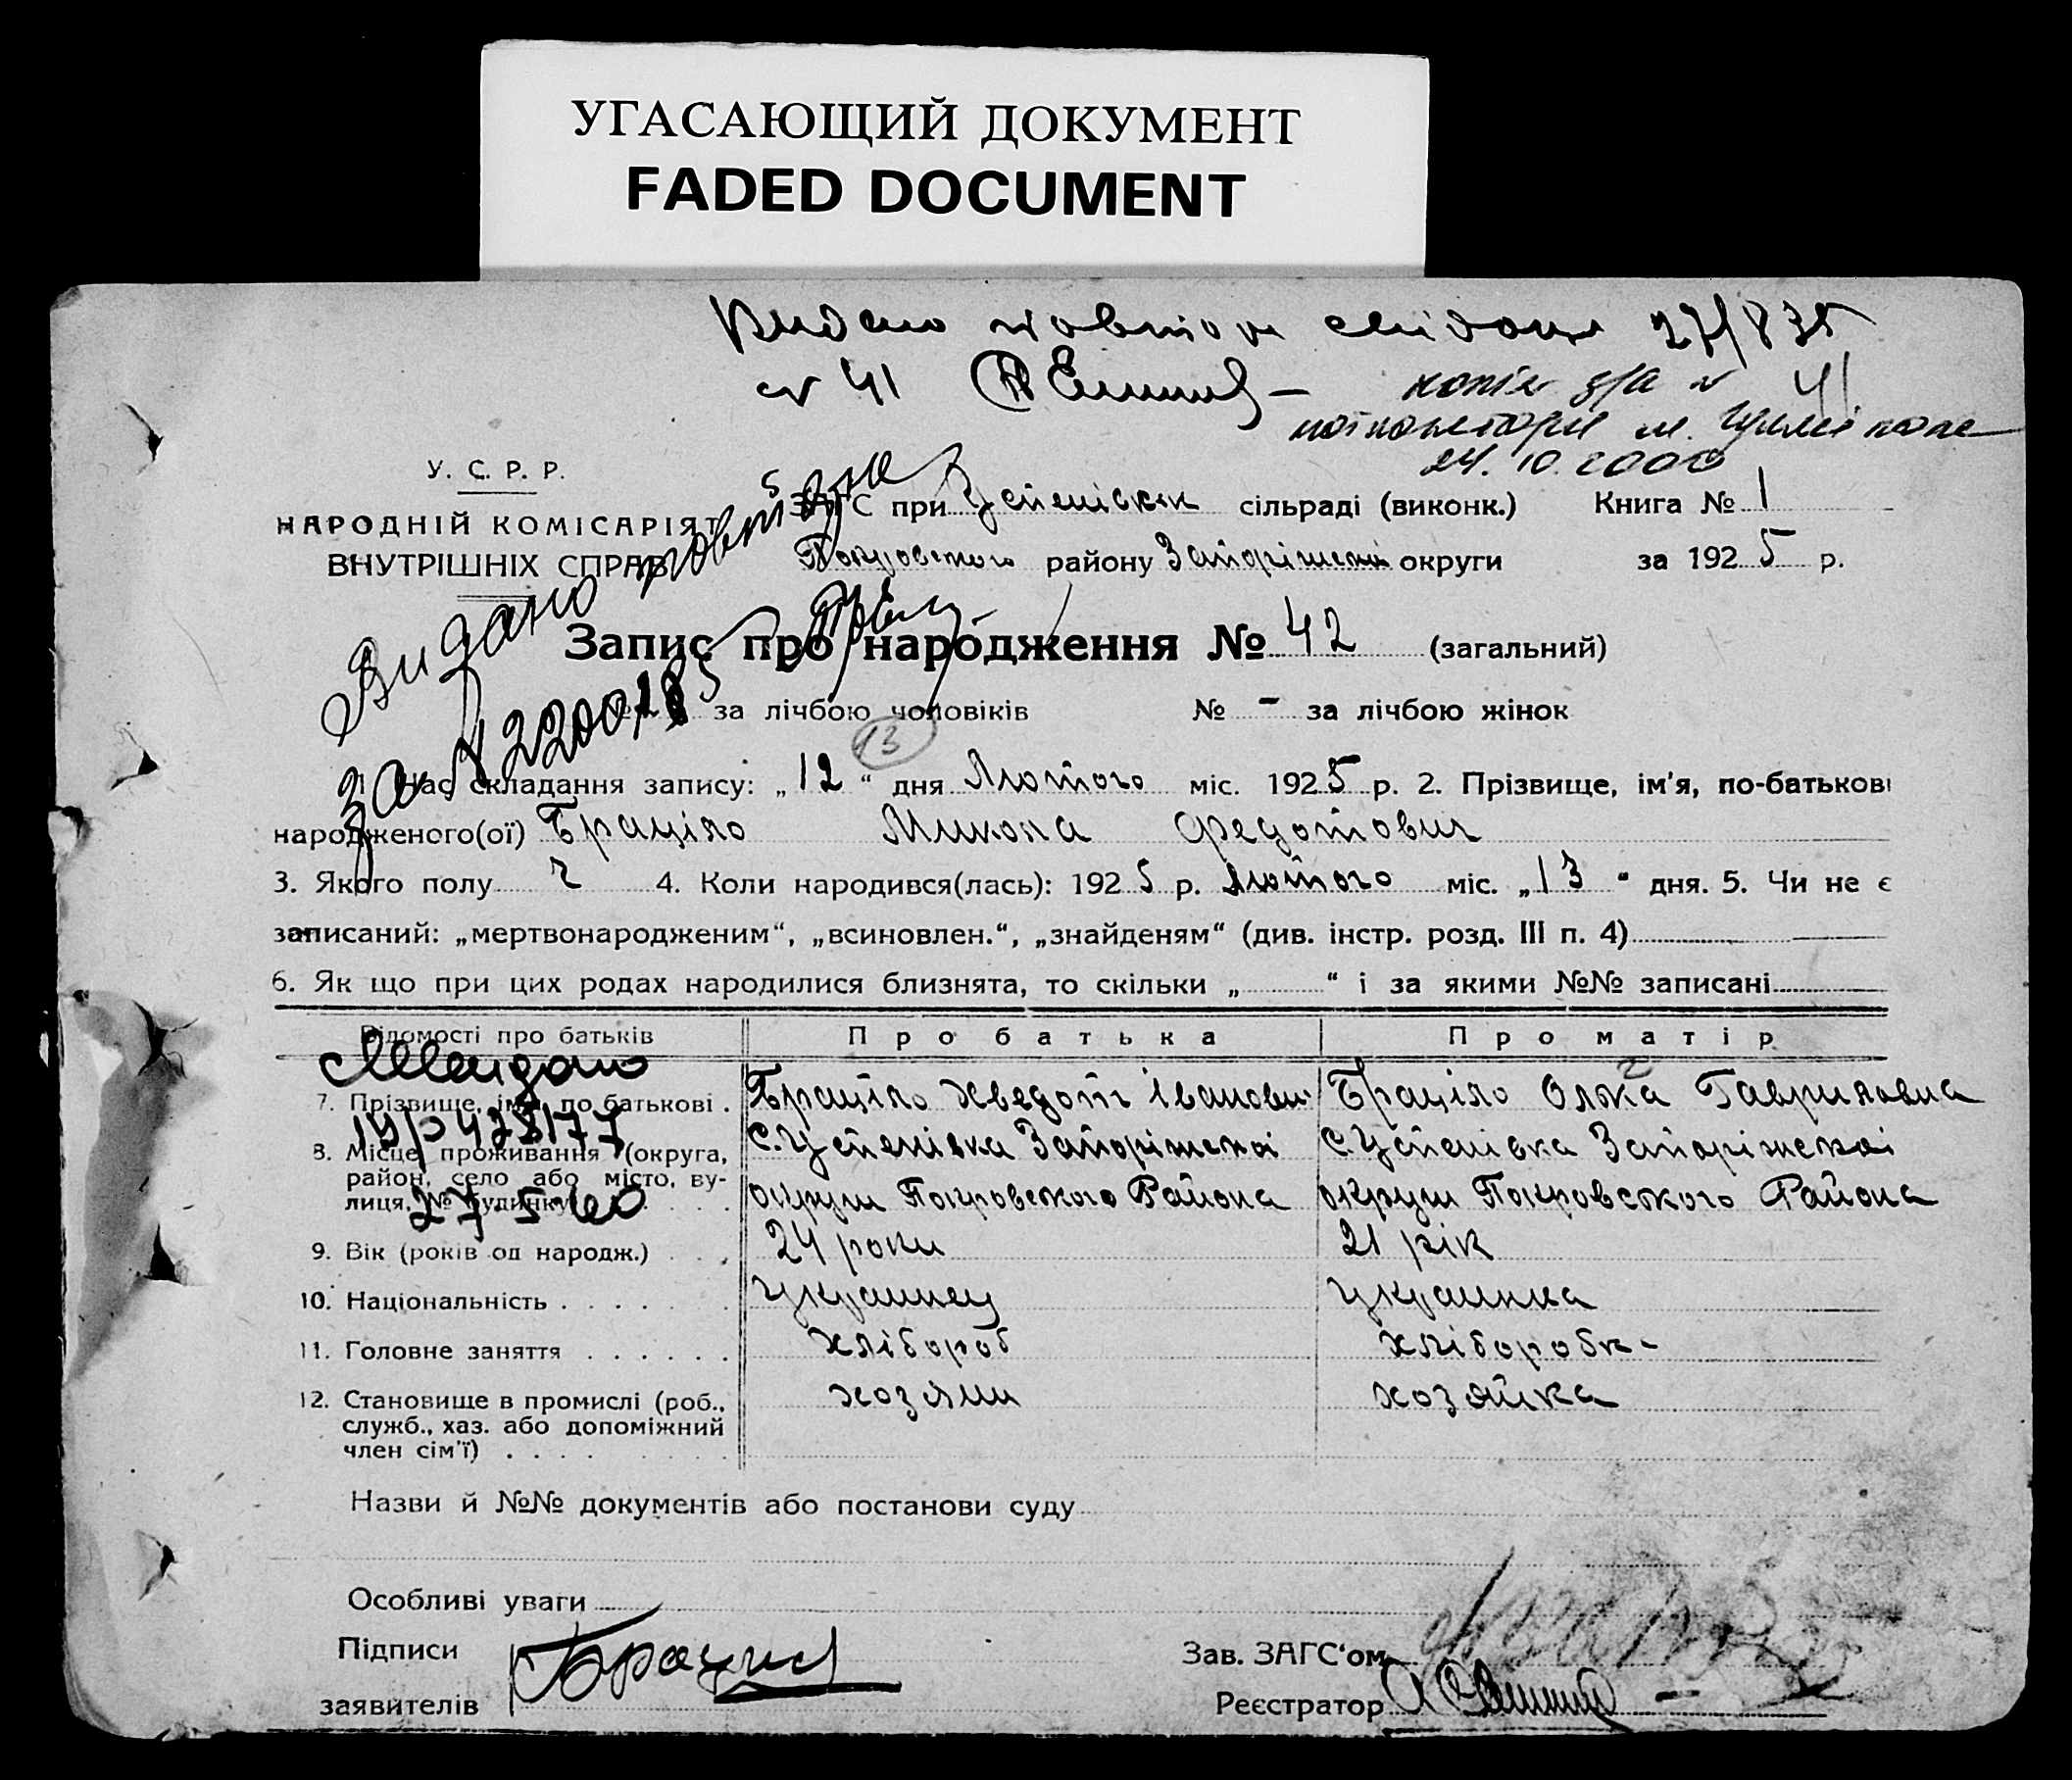 УГАСАЮЩИЙ ДОКУМЕНТ
FADED DOCUMENT
Видано повторн свідоцт 27/835
№ 41
копія з/а № 41
24.10.2000
У. С. Р. Р.
НАРОДНІЙ КОМІСАРІЯТ
ВНУТРІШНІХ СПРАВ
Видано повторне
за № 220018
ЗАГС при Успенівськ сільраді (виконк.) Книга № 1
Покровского району Запоріжської округи за 1925 р.
Запис про народження № 42 (загальний)
за лічбою чоловіків № - за лічбою жінок
13
1. Час складання запису: „12“ дня Лютого міс. 1925 р. 2. Прізвище, ім'я, по-батькові
народженого(ої) Браціло Микола Федотович
3. Якого полу ч 4. Коли народився(лась): 1925 р. Лютого міс. „13“ дня. 5. Чи не є
записаний: „мертвонародженим“, „всиновлен.“, „знайденям“ (див. інстр. розд. III п. 4)
6. Як що при цих родах народилися близнята, то скільки „ “ і за якими №№ записані
Відомості про батьків Про батька Про матір
7. Прізвище, ім'я, по батькові . Браціло Хведот Іванович Браціло Олька Гавриловна
8. Місце проживання (округа, район, село або місто, вулиця, № будинку) с. Успенівка Запоріжскоі округи Покровского Района с. Успенівка Запоріжскоі округи Покровського Района
27.5.60
9. Вік (років од народж.) . . . 24 роки 21 рік
10. Національність . . . . . . . Украинец Украинка
11. Головне заняття . . . . . . хлібороб хліборобк-
12. Становище в промислі (роб., служб., хаз. або допоміжний член сім'ї) . . . . хозяин хозяйка
Назви й №№ документів або постанови суду
Особливі уваги
Підписи
заявителів
Зав. ЗАГС'ом
Реєстратор